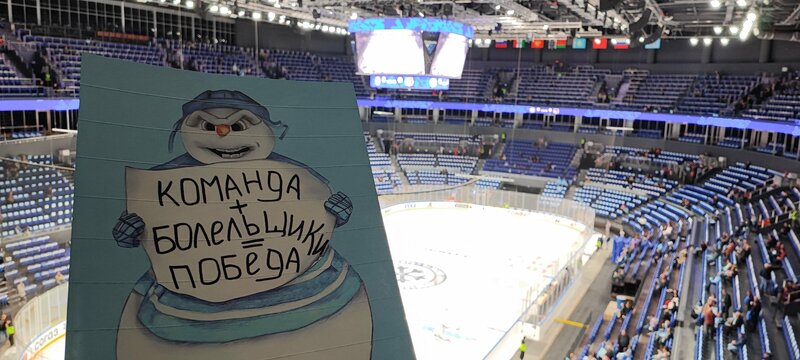 КОМАНДА
+
БОЛЕЛЬЩИКИ
=
ПОБЕДА